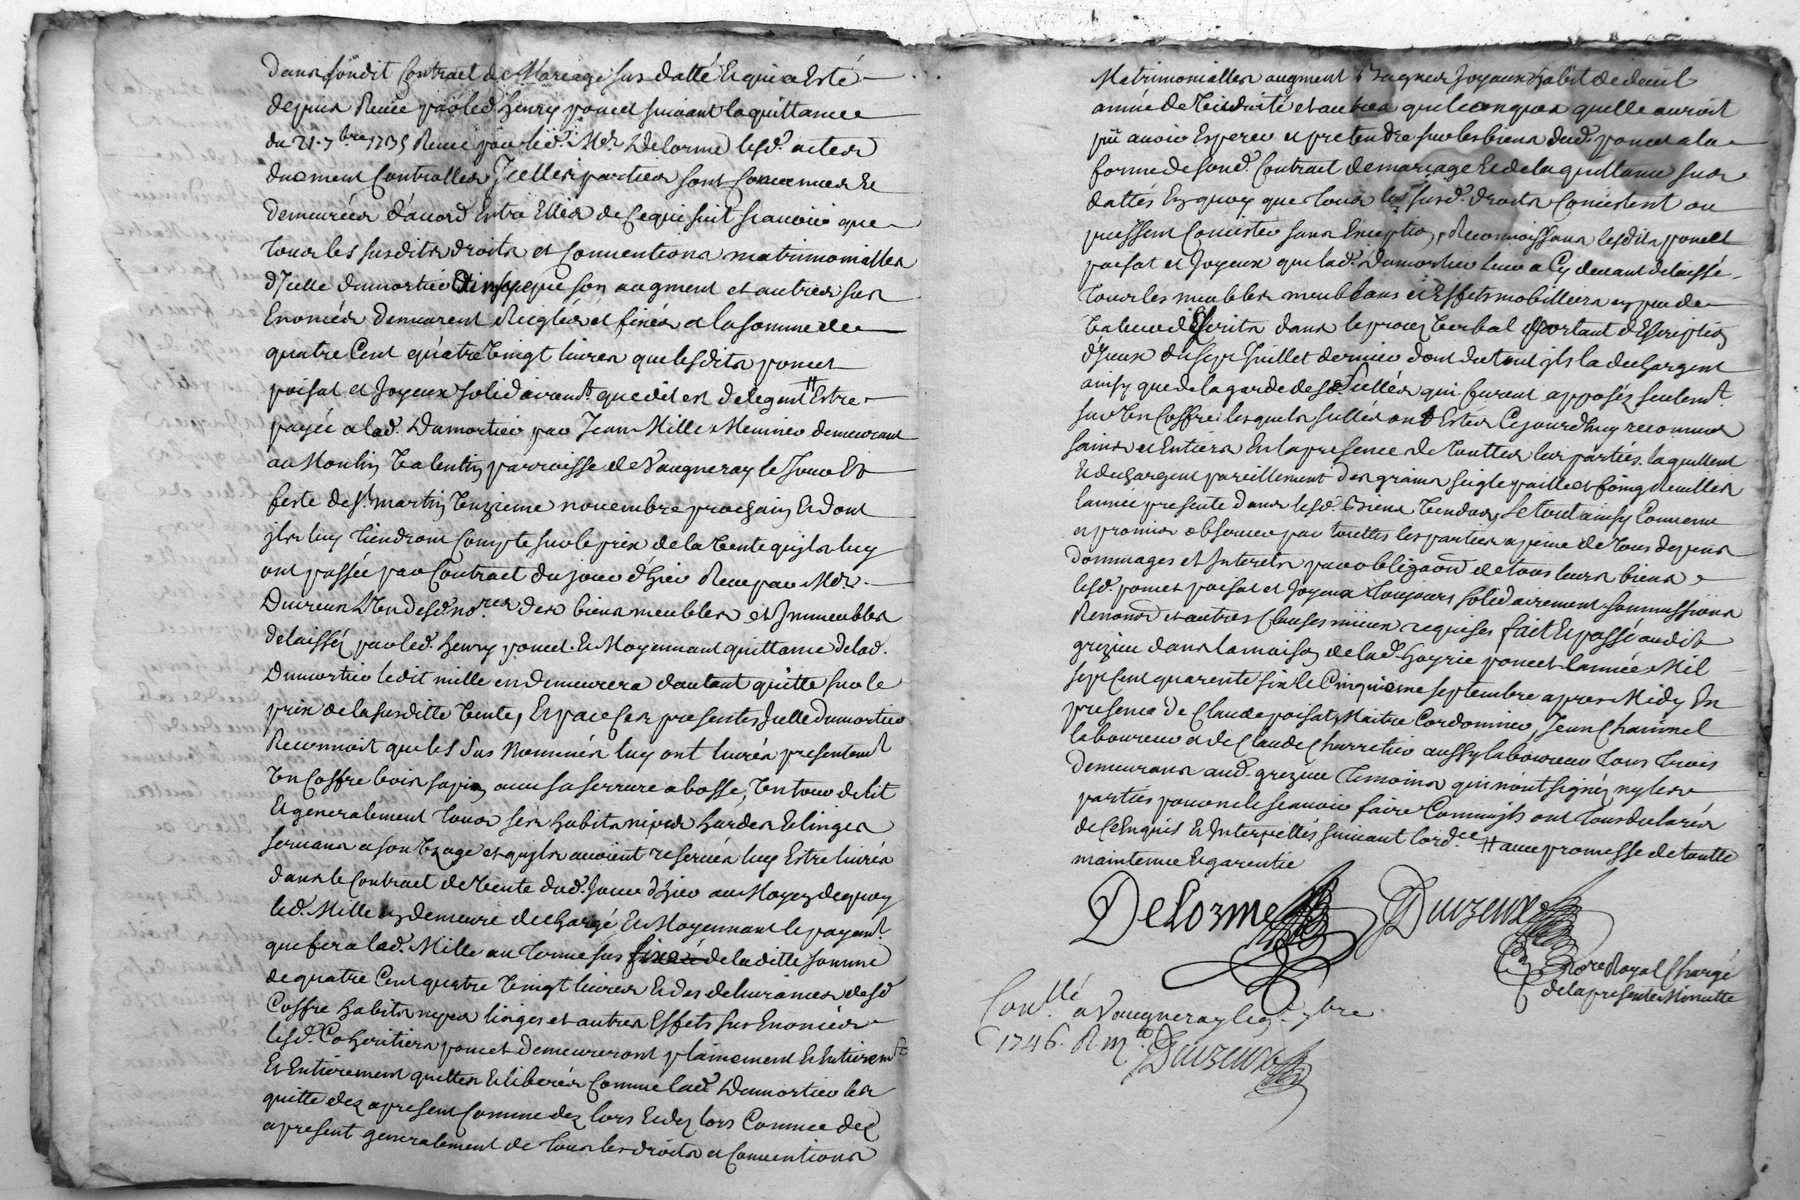 Dans sondit Contract de Mariage sus datté Et qui a Esté
depuis Reçue par led. henry poncet suivant la quittance
du 21. 7bre 1735 Reçue par led. Me. Delorme lesd. actes
duement Controllés Icelles parties sont Convenues Et
demeurées d'acord Entre Elles de Ce qui suit scavoir que
tous les susdits droits et Conventions matrimonialles
d'Icelle dumortier son augment et autres sus
Enoncés demeurent Reglés et fixés a la somme de
quatre Cent quatre Vingt livres que lesdits poncet
poisat et Joyeux solidairemt. que dit est delegant # Estre
payée a lad. Dumortier par Jean Mille Meunier demeurant
au Moulin Valentin parroisse de Vaugneray le Jour Et
feste de st. martin Vnzieme novembre prochain Et dont
jls luy tiendront Compte sur le prix de la Vente qu'jls luy
ont passée par Contract du jour d'hier Reçu par Me.
Duvzeux L'Vn desd. nores. des biens meubles et Immeubles
delaissés par led. henry poncet. Et Moyennant quittance de lad.
Dumortier ledit mille en demeurera d'autant quitte sur le
prix de la susditte Vente, Et par Ces presentes Icelle dumortier
Reconnoit que les sus Nommés luy ont livrés presentemt.
Vn Coffre bois sapin avec sa serrure a bosse, Vn tour de lit
Et generalement tous ses habits nipes hardes Et linges
servans a son Vzage et qu'jls avoient reservés luy Estre livrés
dans le Contract de Vente dud. Jour d'hier au Moyen de quoy
led. Mille en demeure dechargé Et Moyennant le payemt.
que fera led. Mille au terme sus fixée de la ditte somme
de quatre Cent quatre Vingt livres Et des delivrances desd.
Coffre habits nipes linges et autres Effets sus Enoncés
lesd. Coheritiers poncet demeureront plainement Et Entieremt.
Et Entierement quittes Et liberés Comme lad. Dumortier les
quitte dez a present Comme dez lors Et dez lors Comme dez
a present generalement de tous les droits et Conventions
Matrimonialles augment Bagues Joyaux habit de deuil
année de Viduité et autres quelconques qu'elle auroit
pû avoir Esperer et pretendre sur les biens dud. poncet a la
forme de sond. Contract de mariage Et de la quittance sus
dattés En quoy que tous les susd. droits Concistent ou
puissent Concister sans Exception, Reconnoissans lesdits poncet
poisat et Joyeux que lad. Dumortier leur a Cy devant delaissé
tous les meubles meublans et Effets mobilliers en peu de
Valeur descrits dans le procez Verbal portant description
d'Iceux du sept Juillet dernier dont du tout jls la dechargent
ainsy que de la garde des scellés qui furent apposéz seulemt.
sur Vn Coffre. lesquels scellés ont Estés Cejourd'huy reconnus
sains et Entiers En la presence de touttes les parties. laquittent
Et dechargent pareillement des grains seigle paille et foing Ceuillis
l'année presente dans lesd. biens Vendus, Le tout ainsy Convenu
et promis observer par touttes les parties a peine de tous depens
dommages et Interets par obligaon de tous leurs biens
lesd. poncet poisat et Joyeux toujours solidairement soumissions
Renonon et autres Clauses mieux requises fait Et passé audit
grezieu dans la maison de lad. hoyrie poncet l'année Mil
sept Cent quarente six le Cinquieme septembre apres Midy En
presence de Claude poisat Maitre Cordonnier, Jean Chammel
laboureur et de Claude Charretier aussy laboureur tous trois
demeurans aud. grezieu temoins qui n'ont signéz ny les
parties pour ne le scavoir faire Comm'jls ont tous declarés
de Ce Enquis Et Interpellés suivant l'ordce. # avec promesse de toutte
maintenue Et garentie
Delorme Duvzeux
nore Royal Chargé
de la presente Minutte
Conllé. a Vaugneray le 9. 7bre
1746. R. Duvzeux